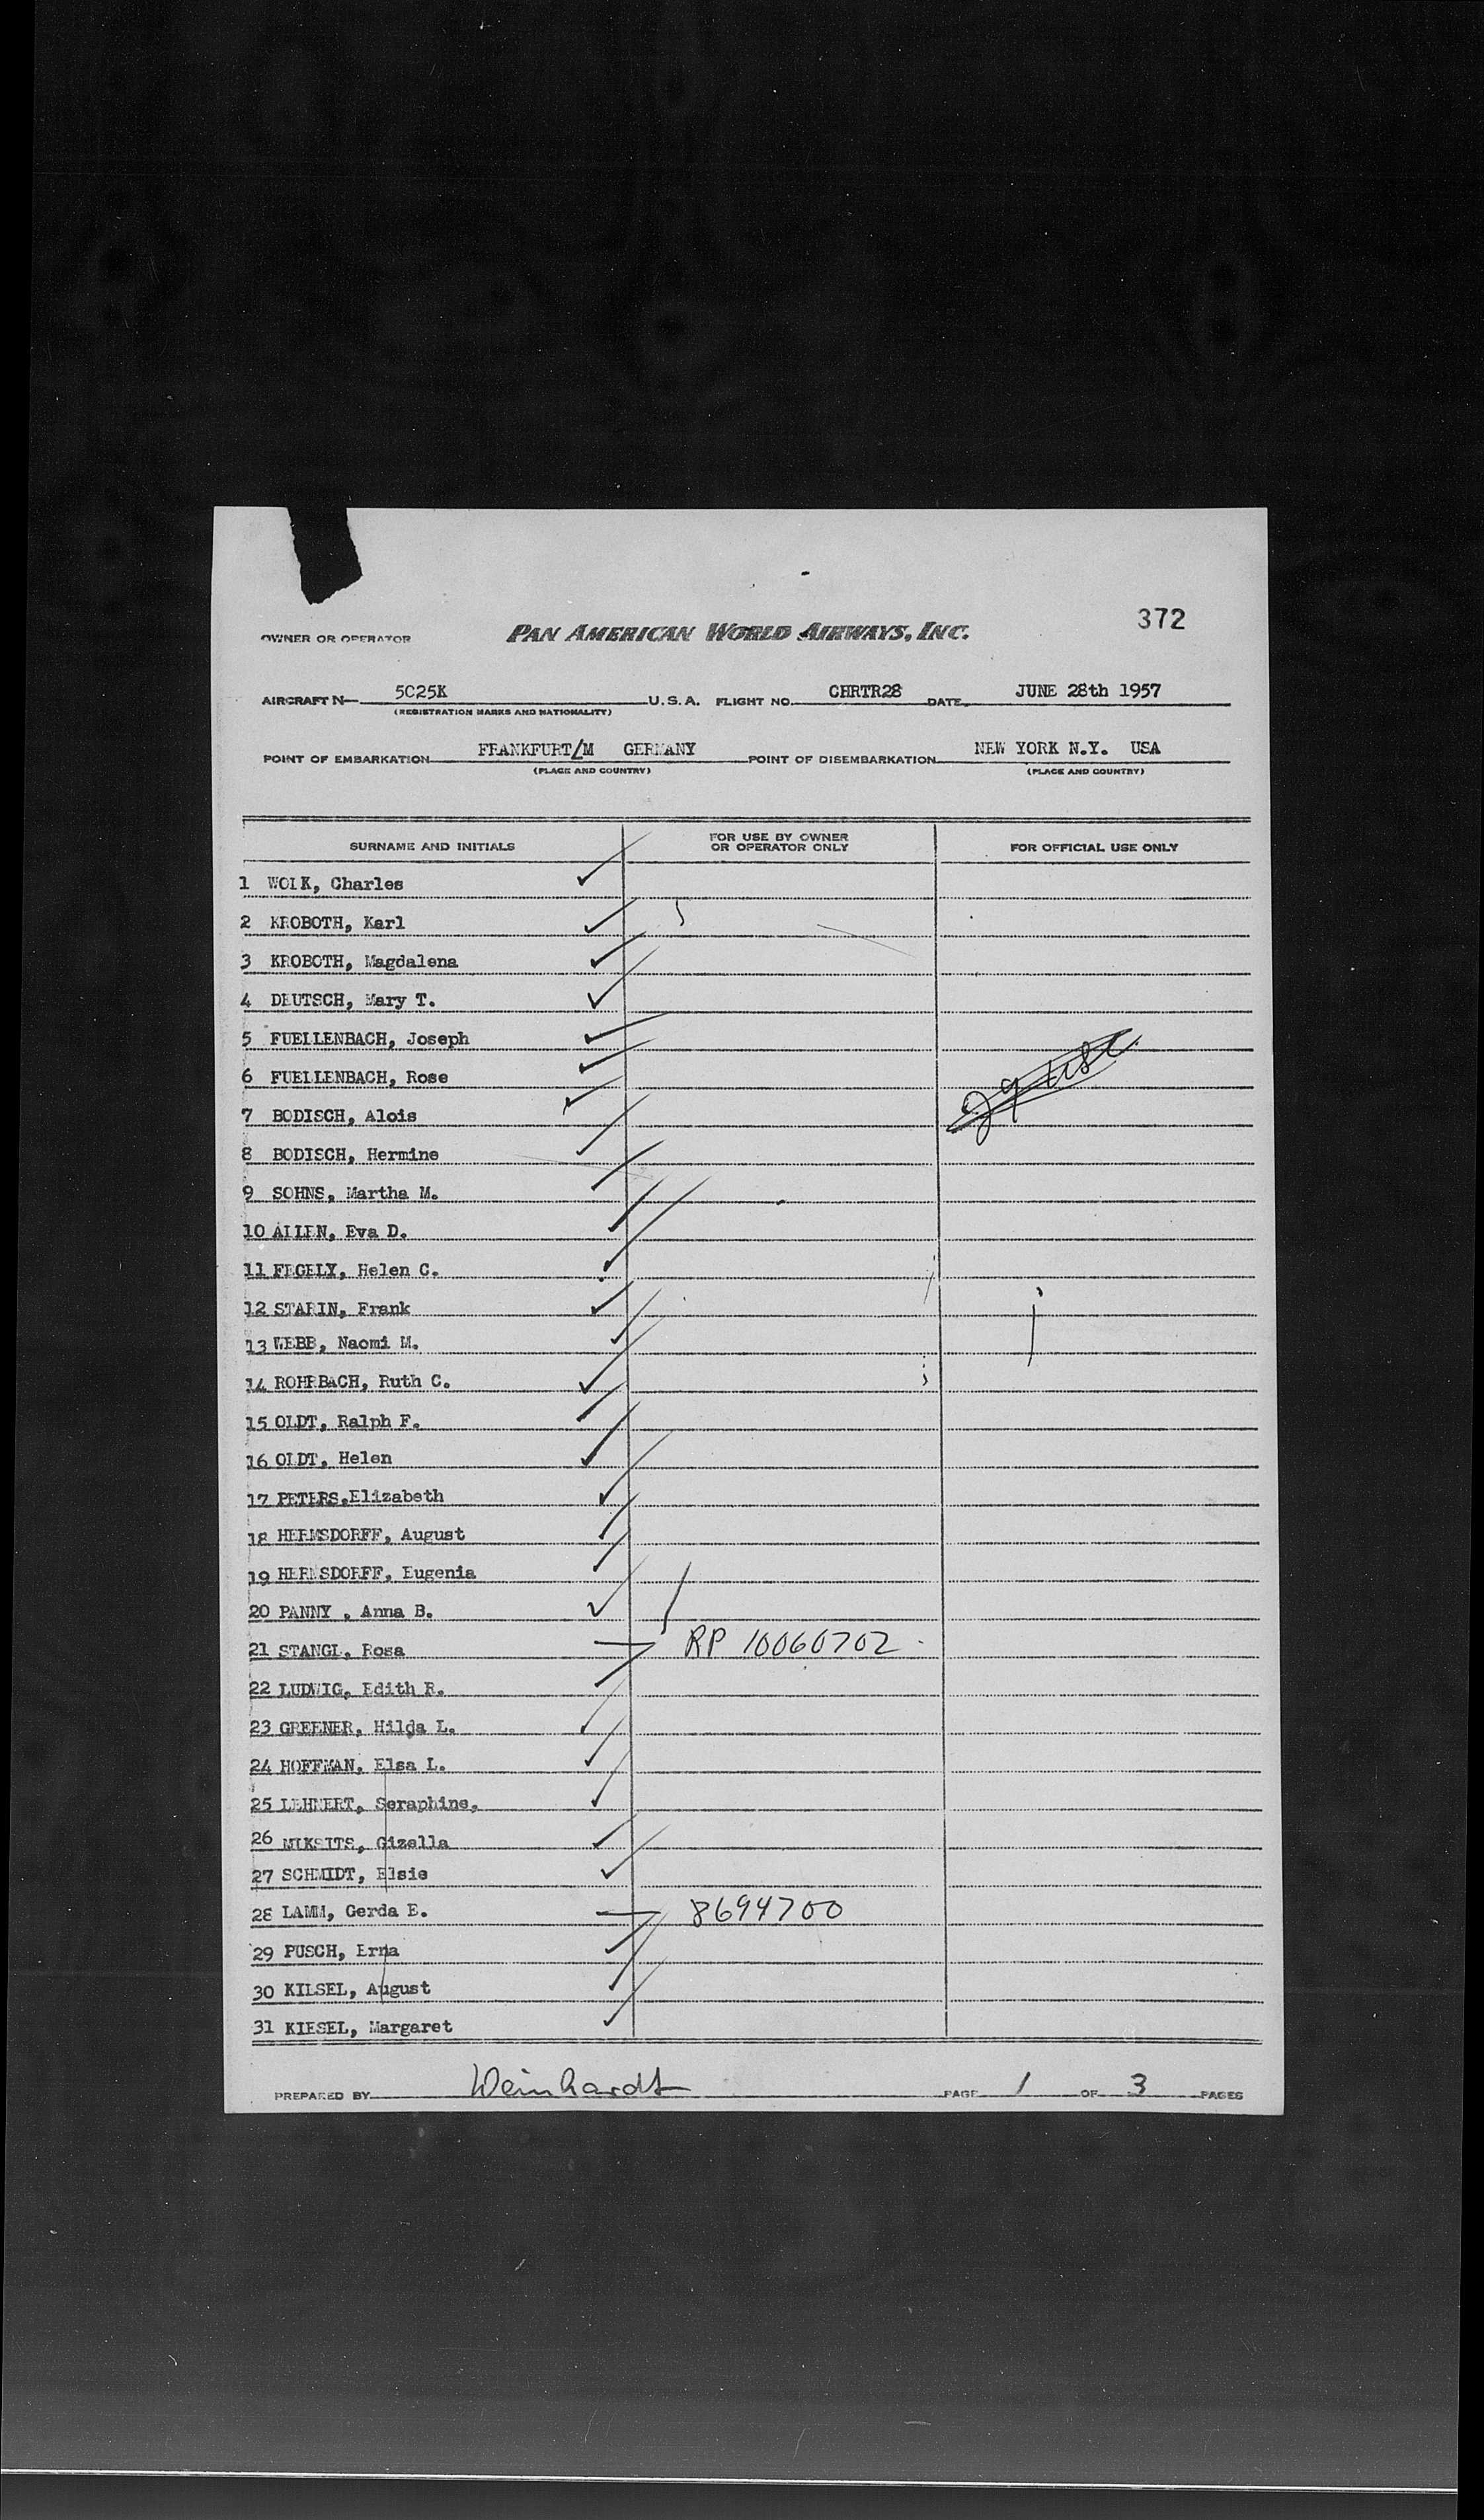 372
OWNER OR OPERATOR PAN AMERICAN WORLD AIRWAYS, INC.
AIRCRAFT N— 5C25K U.S.A. FLIGHT NO. CHRTR28 DATE JUNE 28th 1957
(REGISTRATION MARKS AND NATIONALITY)
POINT OF EMBARKATION FRANKFURT/M GERMANY POINT OF DISEMBARKATION NEW YORK N.Y. USA
(PLACE AND COUNTRY) (PLACE AND COUNTRY)
SURNAME AND INITIALS FOR USE BY OWNER OR OPERATOR ONLY FOR OFFICIAL USE ONLY
1 WOLK, Charles
2 KROBOTH, Karl
3 KROBOTH, Magdalena
4 DEUTSCH, Mary T.
5 FUELLENBACH, Joseph
6 FUELLENBACH, Rose
29 USC
7 BODISCH, Alois
8 BODISCH, Hermine
9 SOHNS, Martha M.
10 ALLEN, Eva D.
11 FEGELY, Helen C.
12 STARIN, Frank
13 WEBB, Naomi M.
14 ROHRBACH, Ruth C.
15 OLDT, Ralph F.
16 OLDT, Helen
17 PETERS,Elizabeth
18 HERMSDORFF, August
19 HERMSDORFF, Eugenia
20 PANNY , Anna B.
21 STANGL, Rosa RP 10060702
22 LUDWIG, Edith R.
23 GREENER, Hilda L.
24 HOFFMAN, Elsa L.
25 LEHNERT, Seraphine.
26 MIKSITS, Gizella
27 SCHMIDT, Elsie
28 LAMM, Gerda E. 8694700
29 PUSCH, Erna
30 KIESEL, August
31 KIESEL, Margaret
PREPARED BY Weinhardt PAGE 1 OF 3 PAGES